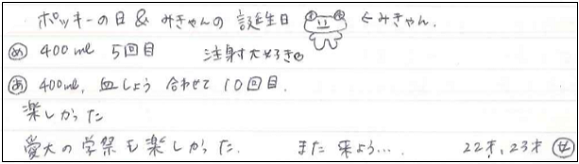 ポッキーの日 & みきゃんの誕生日 ←みきゃん.
め 400ml 5回目 注射大好き
あ 400ml, 血しょう 合わせて 10回目.
楽しかった
愛大の学祭も楽しかった. また来よう… 22才, 23才 女